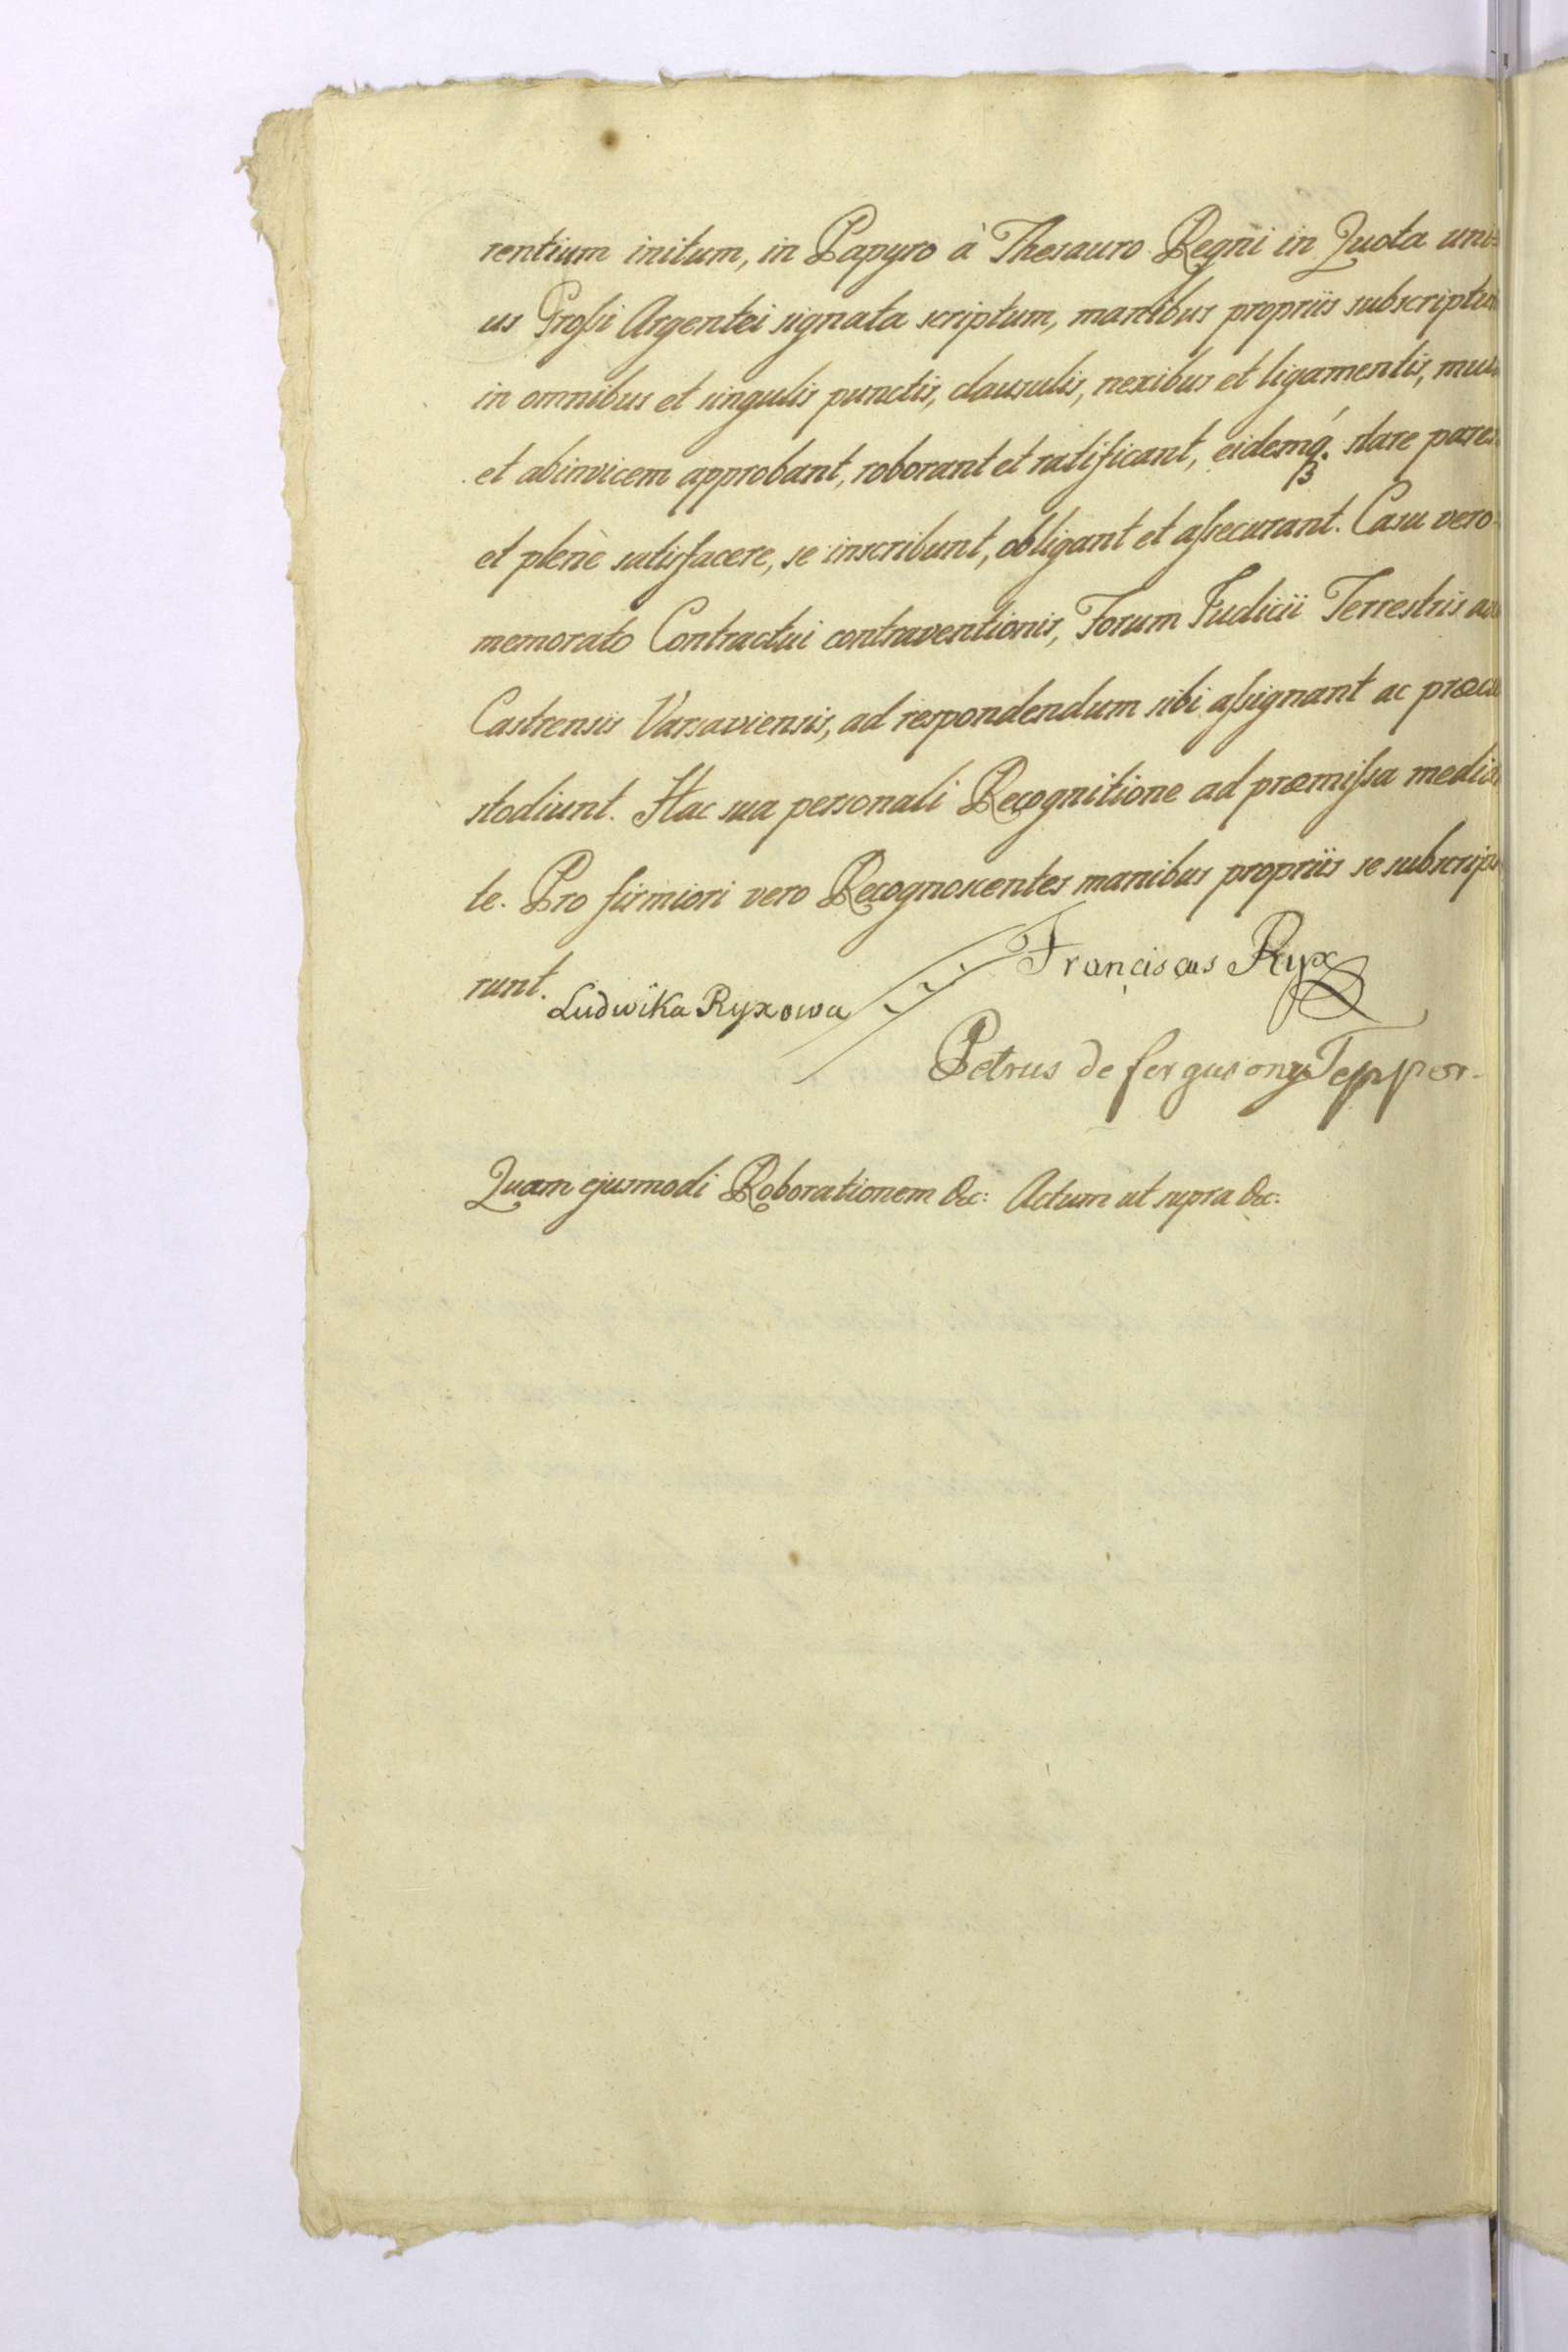 rentium initum, in Papyro à Thesauro Regni in Quota uni=
us Grossi Argentei signata scriptum, manibus propriis subscriptu
in omnibus et singulis punctis, clausulis, nexibus et ligamentis, mu
et abinvicem approbant, roborant et ratificant, eidemq́. stare pare
et plenè satisfacere, se inscribunt, obligant et assecurant. Casu vero
memorato Contractui contraventionis, Forum Judicii Terrestris a
Castrensis Varsaviensis, ad respondendum sibi assignant ac præcu
stodiunt. Hac sua personali Recognitione ad præmissa media
te. Pro firmiori vero Recognoscentes manibus propriis se subscrips
runt.
Franciscus Ryx
Ludwika Ryxowa
Petrus de fergusony Tepper
Quam ejusmodi Roborationem &c: Actum ut supra &c: